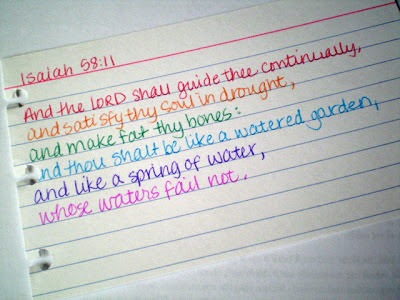 Isaiah 58:11
And the LORD shall guide thee continually,
and satisfy thy soul in drought,
and make fat thy bones:
nd thou shalt be like a watered garden,
and like a spring of water,
whose waters fail not.